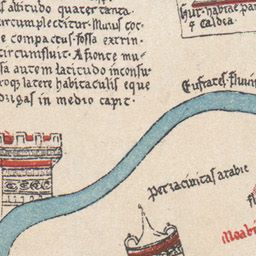 s altitudo quater tanta
ircum plectitur. Murus coc
e compactus. fossa extrin
ircumfluit. A fronte mu
sa autem latitudo inconsu
roqz latere habitaculis eque
drigas in medio capit.
hur habitac par
Caldea
Eufrates. fluvi
Petra civitas arabie
fl
Moab